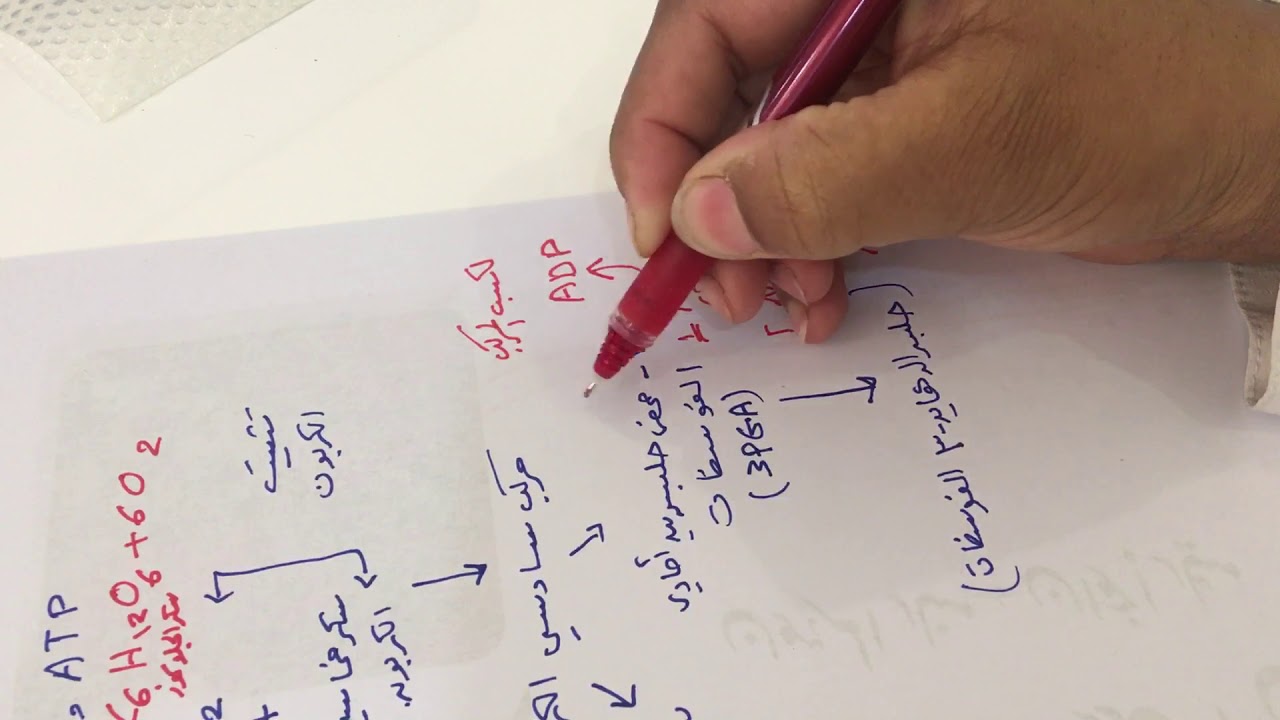 ATP
C6H12O6 + 6O2
سكر الجلوكوز
تثبيت
الكربون
2
+
سكر خماسي
الكربون
مركب سادسي الكر
ADP
حمض جليسريد أحادي
الفوسفات
(3PGA)
(جليسرالدهايد-٣ الفوسفات)